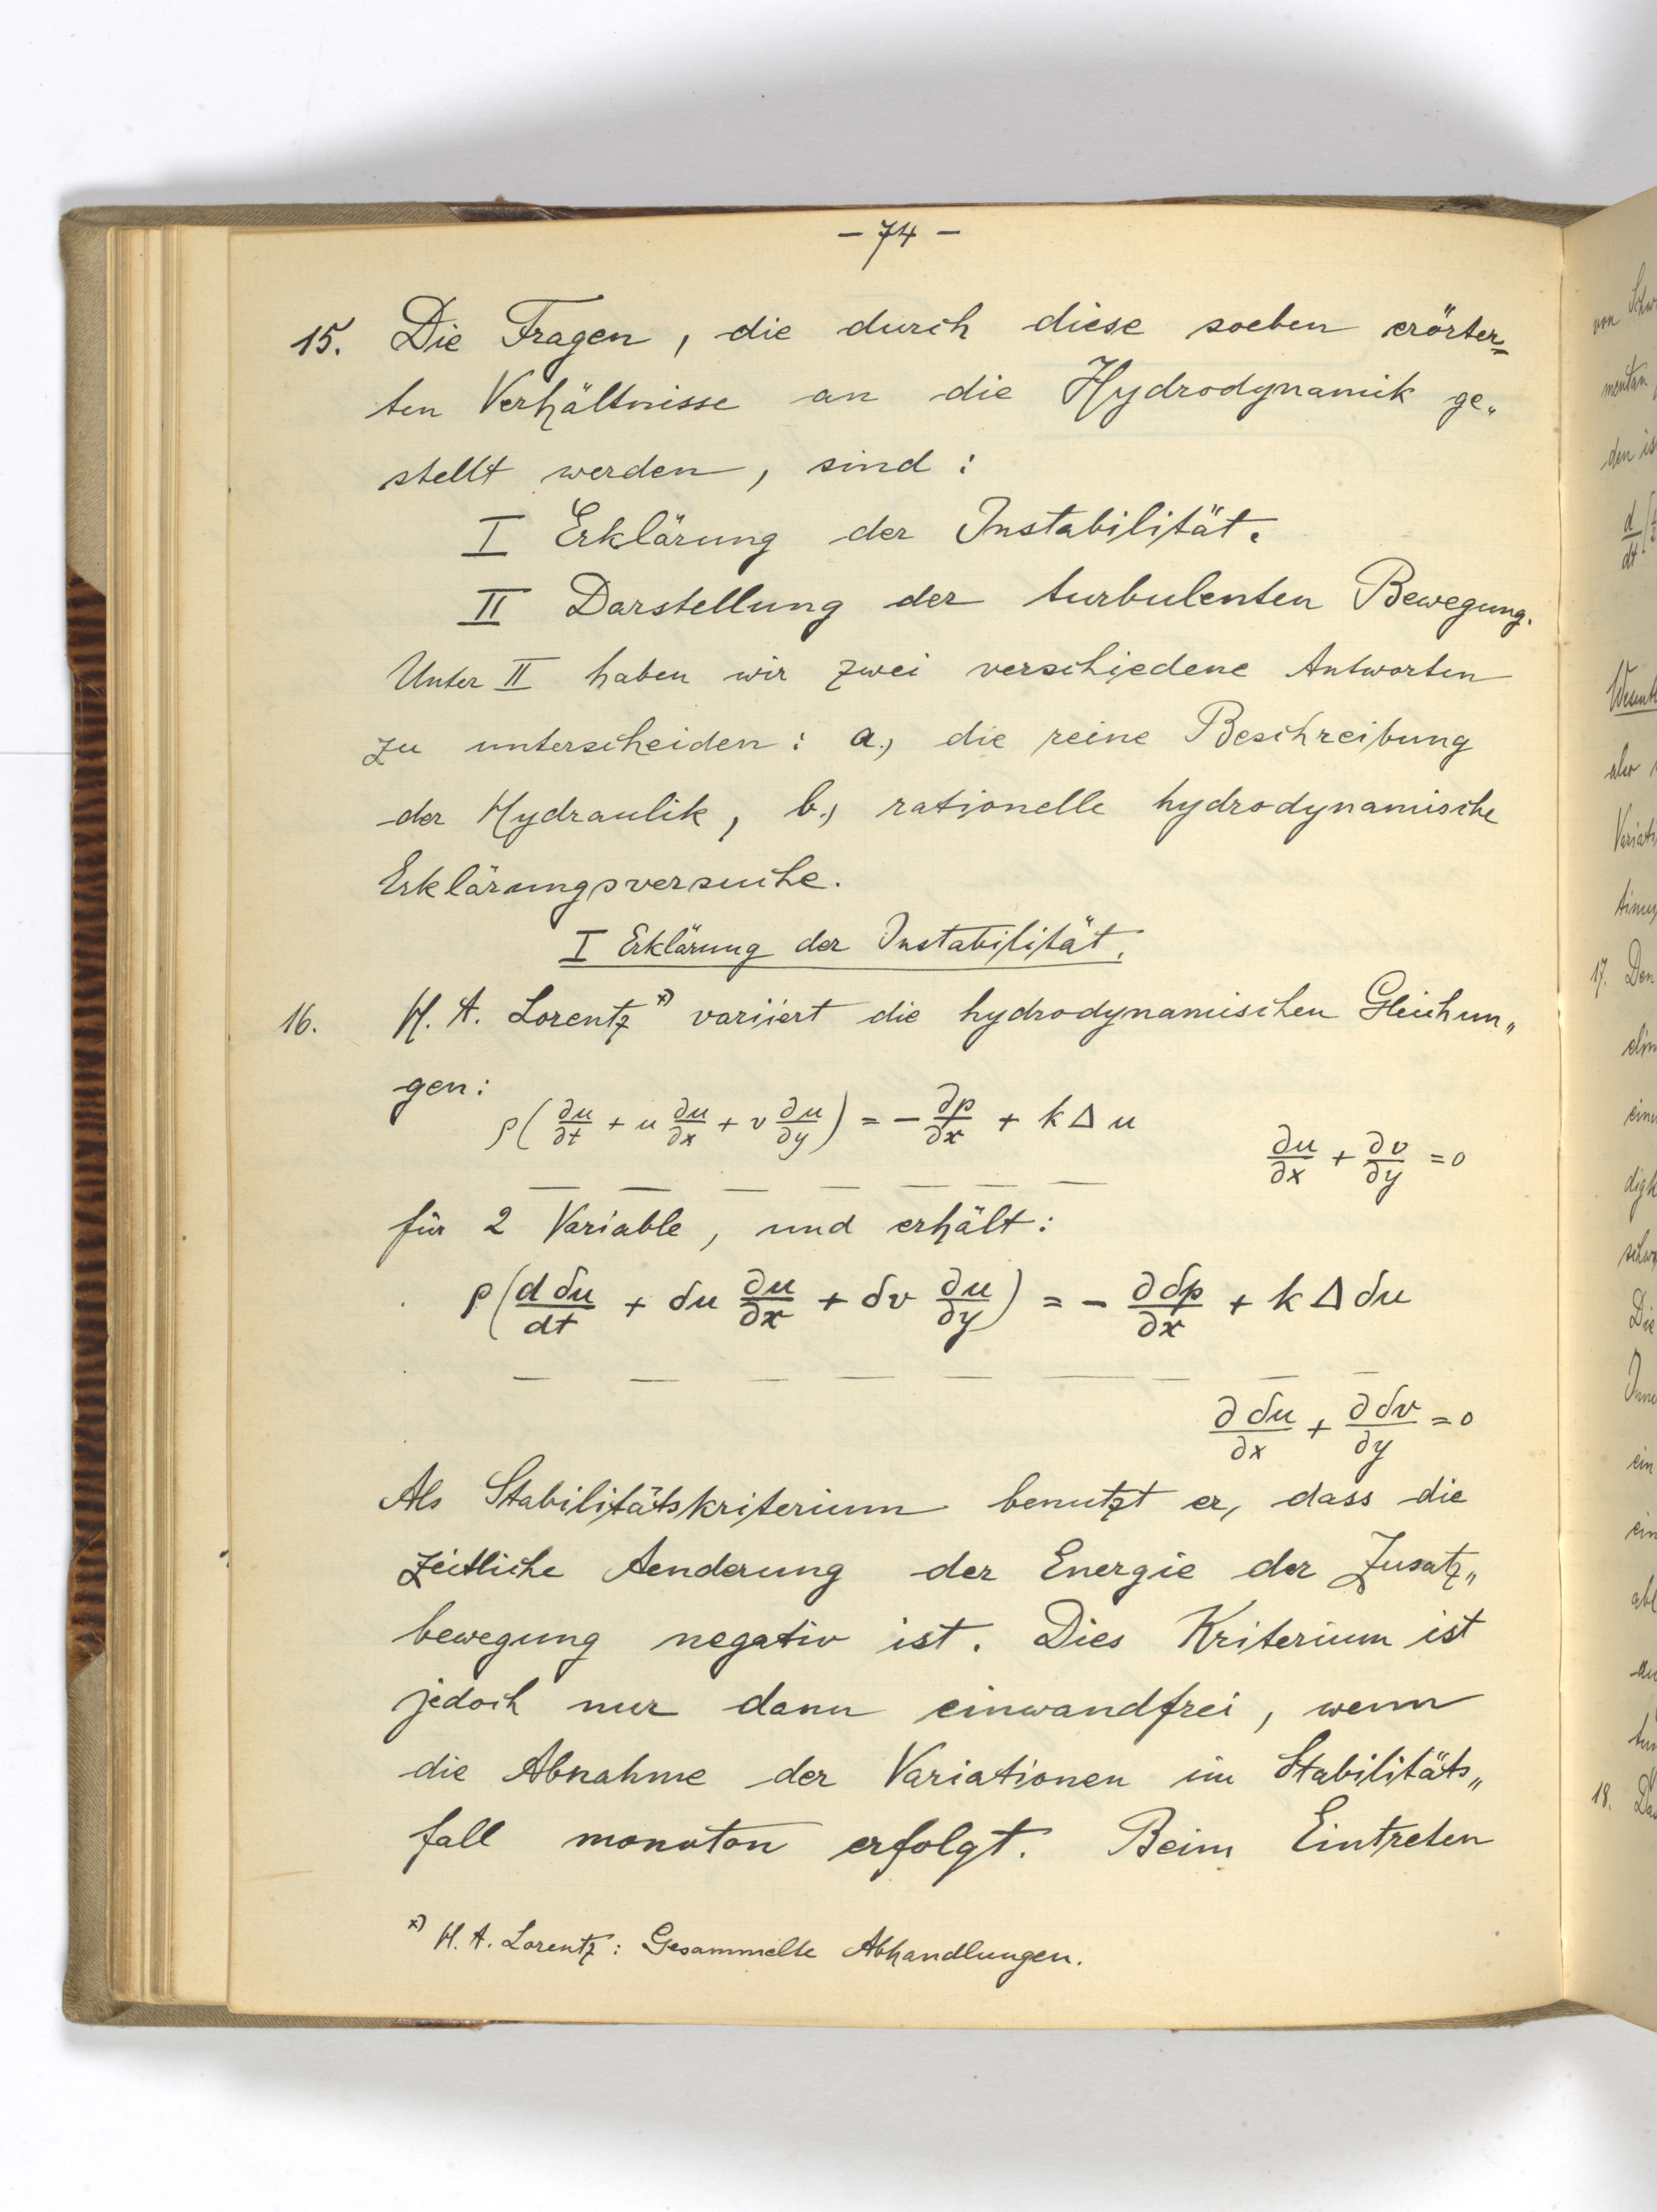 - 74 -
15. Die Fragen, die durch diese soeben erörter=
ten Verhältnisse an die Hydrodynamik ge„
stellt werden, sind:
I Erklärung der Instabilität.
II Darstellung der turbulenten Bewegung.
Unter II haben wir zwei verschiedene Antworten
zu unterscheiden: a., die reine Beschreibung
der Hydraulik, b., rationelle hydrodynamische
Erklärungsversuche.
I Erklärung der Instabilität.
16. H. A. Lorentz *) variiert die hydrodynamischen Gleichun„
gen:
ρ(∂u/∂t + u ∂u/∂x + v ∂u/∂y) = - ∂p/∂x + k Δ u
∂u/∂x + ∂v/∂y = 0
— — — — — — —
für 2 Variable, und erhält:
ρ(d δu/dt + δu ∂u/∂x + δv ∂u/∂y) = - ∂ δp/∂x + k Δ δu
— — — — — — — — —
∂ δu/∂x + ∂ δv/∂y = 0
Als Stabilitätskriterium benutzt er, dass die
zeitliche Aenderung der Energie der Zusatz„
bewegung negativ ist. Dies Kriterium ist
jedoch nur dann einwandfrei, wenn
die Abnahme der Variationen im Stabilitäts„
fall monoton erfolgt. Beim Eintreten
*) H. A. Lorentz: Gesammelte Abhandlungen.
17. Den
18.